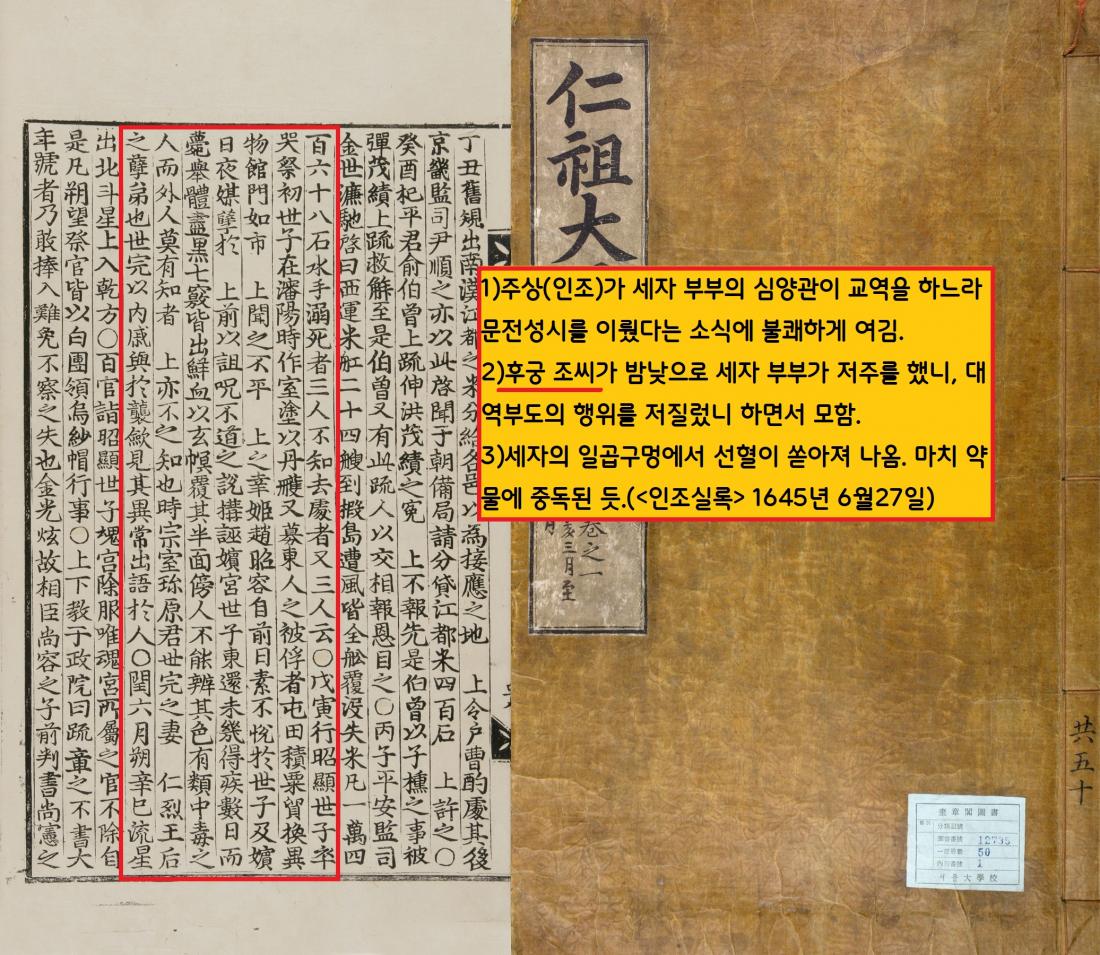 丁丑舊規出南漢江都之米分給各邑以為接應之地 上令户曹酌處其後
京畿監司尹順之亦以此啓聞于朝備局請分貸江都米四百石 上許之〇
癸酉杞平君俞伯曾上疏伸洪茂績之冤 上不報先是伯曾以子櫄之事被
彈茂績上疏救解至是伯曾又有此疏人以交相報恩目之〇丙子平安監司
金世濂馳啓曰西運米舡二十四艘到椵島遭風皆全舩覆沒失米凡一萬四
百六十八石水手溺死者三人不知去處者又三人云〇戊寅行昭顯世子卒
哭祭初世子在瀋陽時作室塗以丹雘又募東人之被俘者屯田積粟貿換異
物館門如市 上聞之不平 上之幸姬趙昭容自前日素不悅於世子及嬪
日夜媒孼於 上前以詛呪不道之說搆誣嬪宮世子東還未幾得疾數日而
薨舉體盡黑七竅皆出鮮血以玄幎覆其半面傍人不能辨其色有類中毒之
人而外人莫有知者 上亦不之知也時宗室珎原君世完之妻 仁烈王后
之孽弟也世完以内戚與於襲歛見其異常出語於人〇閏六月朔辛巳流星
出北斗星上入乾方〇百官詣昭顯世子魂宮除服唯魂宮所屬之官不除自
是凡朔望祭官皆以白團領烏紗帽行事〇上下敎于政院曰疏章之不書大
年號者乃敢捧入難免不察之失也金光炫故相臣尚容之子前判書尚憲之
仁祖大
1)주상(인조)가 세자 부부의 심양관이 교역을 하느라
문전성시를 이뤘다는 소식에 불쾌하게 여김.
2)후궁 조씨가 밤낮으로 세자 부부가 저주를 했니, 대
역부도의 행위를 저질렀니 하면서 모함.
3)세자의 일곱구멍에서 선혈이 쏟아져 나옴. 마치 약
물에 중독된 듯.(<인조실록> 1645년 6월27일)
卷之一
亥三月至
月
共五十
奎章閣圖書
分類記號
圖書番號 12795
一部冊數 50
內冊番號 1
서울大學校